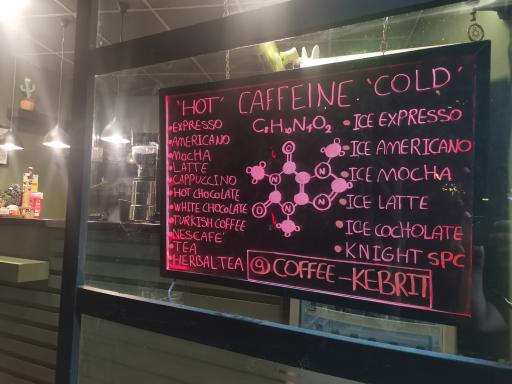 'HOT' CAFFEINE 'COLD'
C8H10N4O2
• EXPRESSO
• AMERICANO
• MOCHA
• LATTE
• CAPPUCCINO
• HOT CHOCOLATE
• WHITE CHOCOLATE
• TURKISH COFFEE
• NESCAFE'
• TEA
• HERBAL TEA
O
N
N
N
N
O
• ICE EXPRESSO
• ICE AMERICANO
• ICE MOCHA
• ICE LATTE
• ICE COCHOLATE
• KNIGHT SPC
COFFEE-KEBRIT